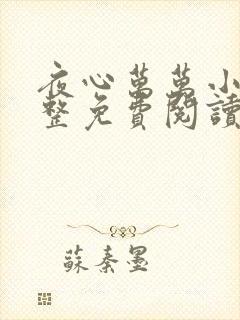 夜心萬萬小
整免費閱讀
蘇秦墨